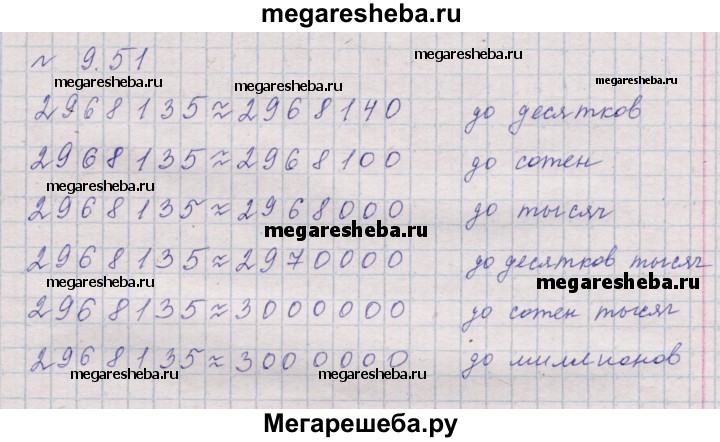 megaresheba.ru
№ 9.51
megaresheba.ru megaresheba.ru megaresheba.ru
2968135≈2968140 до десятков
megaresheba.ru
2968135≈2968100 до сотен
megaresheba.ru
2968135≈2968000 до тысяч
megaresheba.ru
2968135≈2970000 до десятков тысяч
megaresheba.ru
2968135≈3000000 до сотен тысяч
2968135≈3000000 до миллионов
megaresheba.ru megaresheba.ru
Мегарешеба.ру